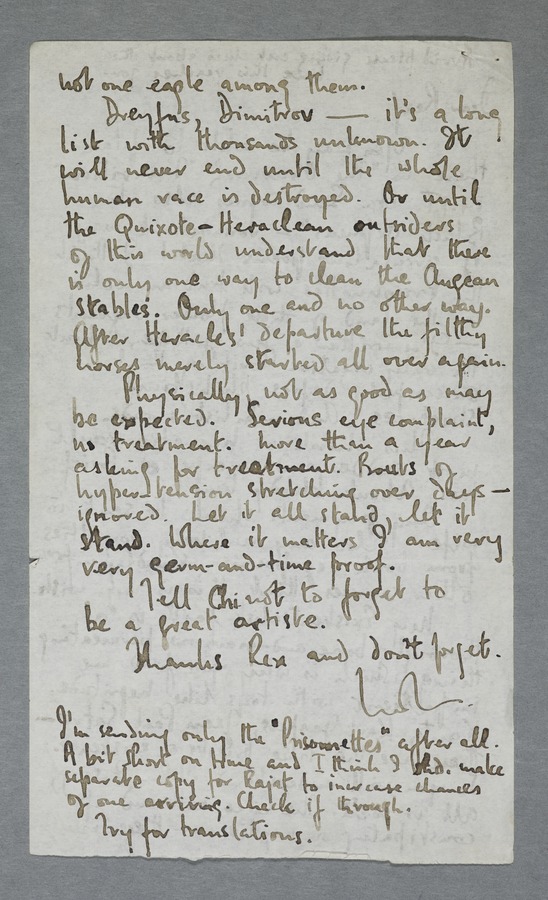 not one eagle among them.
Dreyfus, Dimitrov — it's a long
list with thousands unknown. It
will never end until the whole
human race is destroyed. Or until
the Quixote-Heraclean outriders
of this world understand that there
is only one way to clean the Augean
stables. Only one and no other way.
After Heracles' departure the filthy
horses merely started all over again.
Physically, not as good as may
be expected. Serious eye complaint,
no treatment. More than a year
asking for treatment. Bouts of
hyper-tension stretching over days —
ignored. Let it all stand, let it
stand. Where it matters I am very
very germ-and-time proof.
Tell Chi not to forget to
be a great artiste.
Thanks Rex and don't forget.
I'm sending only the "Prisonnettes" after all.
A bit short on time and I think I shd. make
separate copy for Rajat to increase chances
of one arriving. Check if through.
Try for translations.